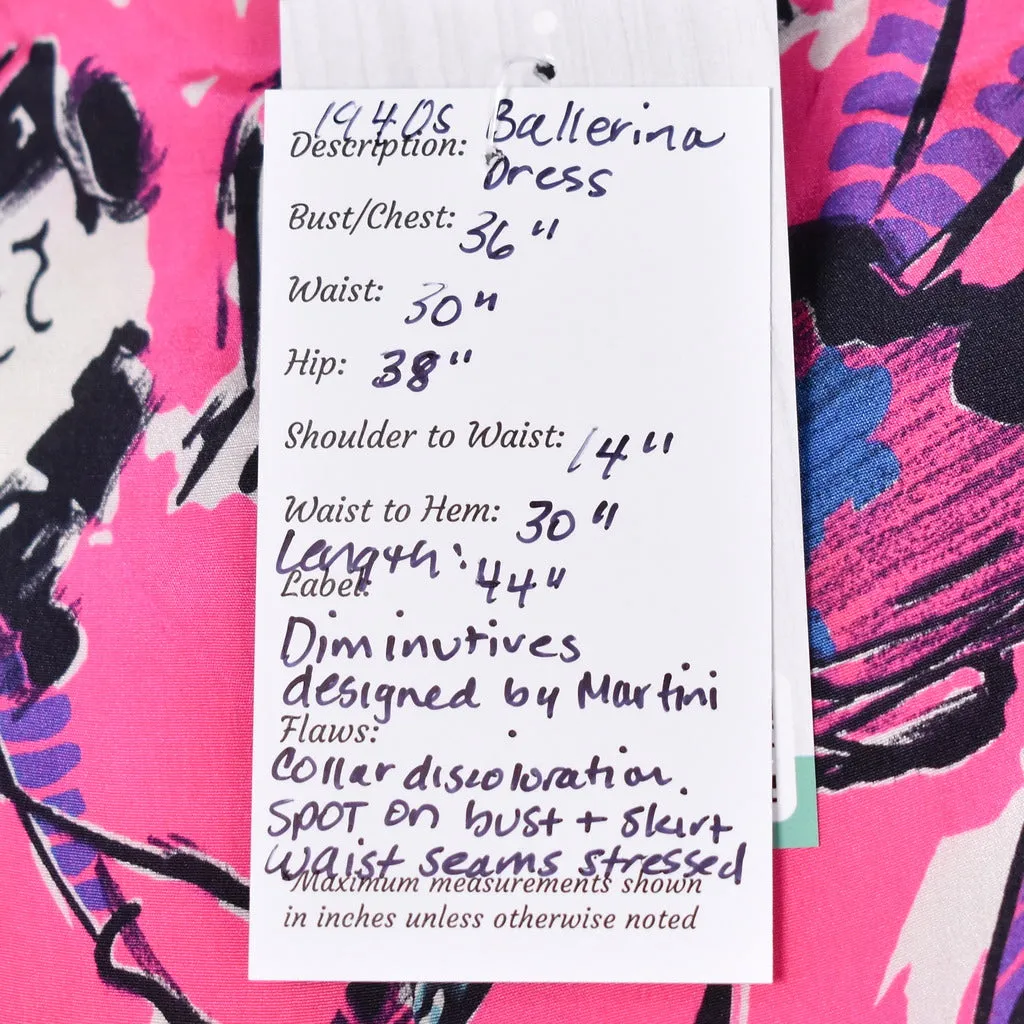 Description: 1940s Ballerina
Dress
Bust/Chest: 36"
Waist: 30"
Hip: 38"
Shoulder to Waist: 14"
Waist to Hem: 30"
Length: 44"
Label:
Diminutives
designed by Martini
Flaws:
Collar discoloration.
SPOT on bust + skirt
waist seams stressed
Maximum measurements shown
in inches unless otherwise noted